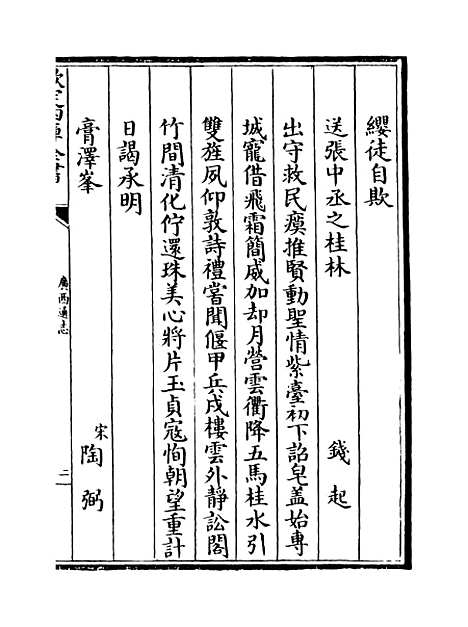 纓徒自欺
送張中丞之桂林 錢起
出守救民瘼推賢動聖情紫臺初下詔皂蓋始專
城寵借飛霜簡威加却月營雲衢降五馬桂水引
雙旌夙仰敦詩禮嘗聞偃甲兵戍樓雲外靜訟閣
竹間清化佇還珠美心將片玉貞寇恂朝望重計
日謁承明
膏澤峯 宋陶弼
廣西通志
二